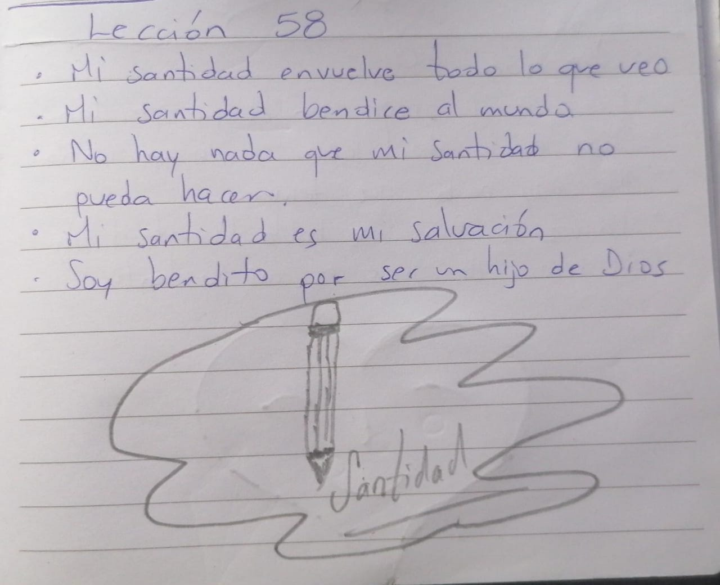 Lección 58
• Mi santidad envuelve todo lo que veo
• Mi santidad bendice al mundo
• No hay nada que mi santidad no
pueda hacer.
• Mi santidad es mi salvación
• Soy bendito por ser un hijo de Dios
Santidad